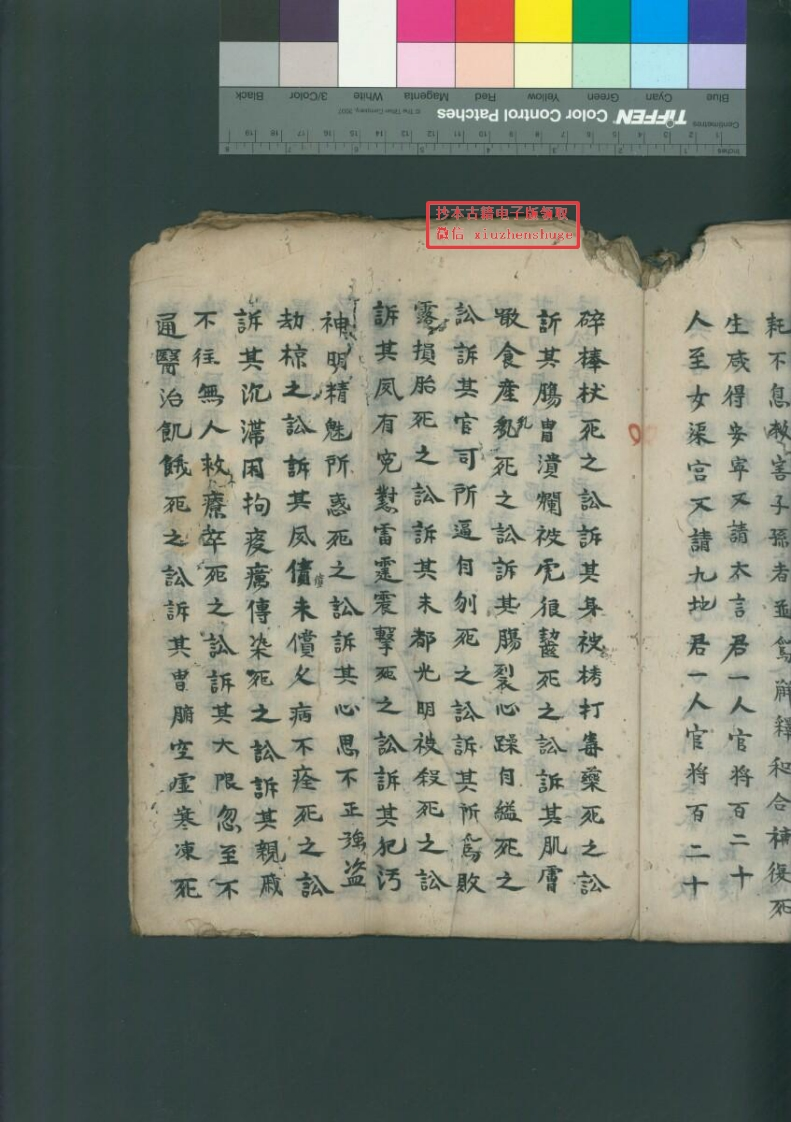 耗不息殺害子孫者並為解釋和合補復死
生咸得安寧又請太言君一人官將百二十
人至女渠宮又請九地君一人官將百二十
碎棒杖死之訟訴其身被栲打毒藥死之訟
訴其腸胃潰爛被虎狼齧死之訟訴其肌膚
噉食產乳死之訟訴其腸裂心躁自縊死之
訟訴其官司所逼自刎死之訟訴其所為敗
露損胎死之訟訴其未都光明被殺死之訟
訴其夙有冤懟雷霆震擊死之訟訴其犯污
神明精魅所惑死之訟訴其心思不正強盜
劫椋之訟訴其夙債未償久病不痊死之訟
訴其沉滯困拘疫癘傳染死之訟訴其親戚
不往無人救療卒死之訟訴其大限忽至不
通醫治飢餓死之訟訴其胃腑空虛寒凍死
抄本古籍电子版领取
微信 xiuzhenshuge
TIFFEN Color Control Patches
© The Tiffen Company, 2007
Centimetres
Inches
Blue Cyan Green Yellow Red Magenta White 3/Color Black